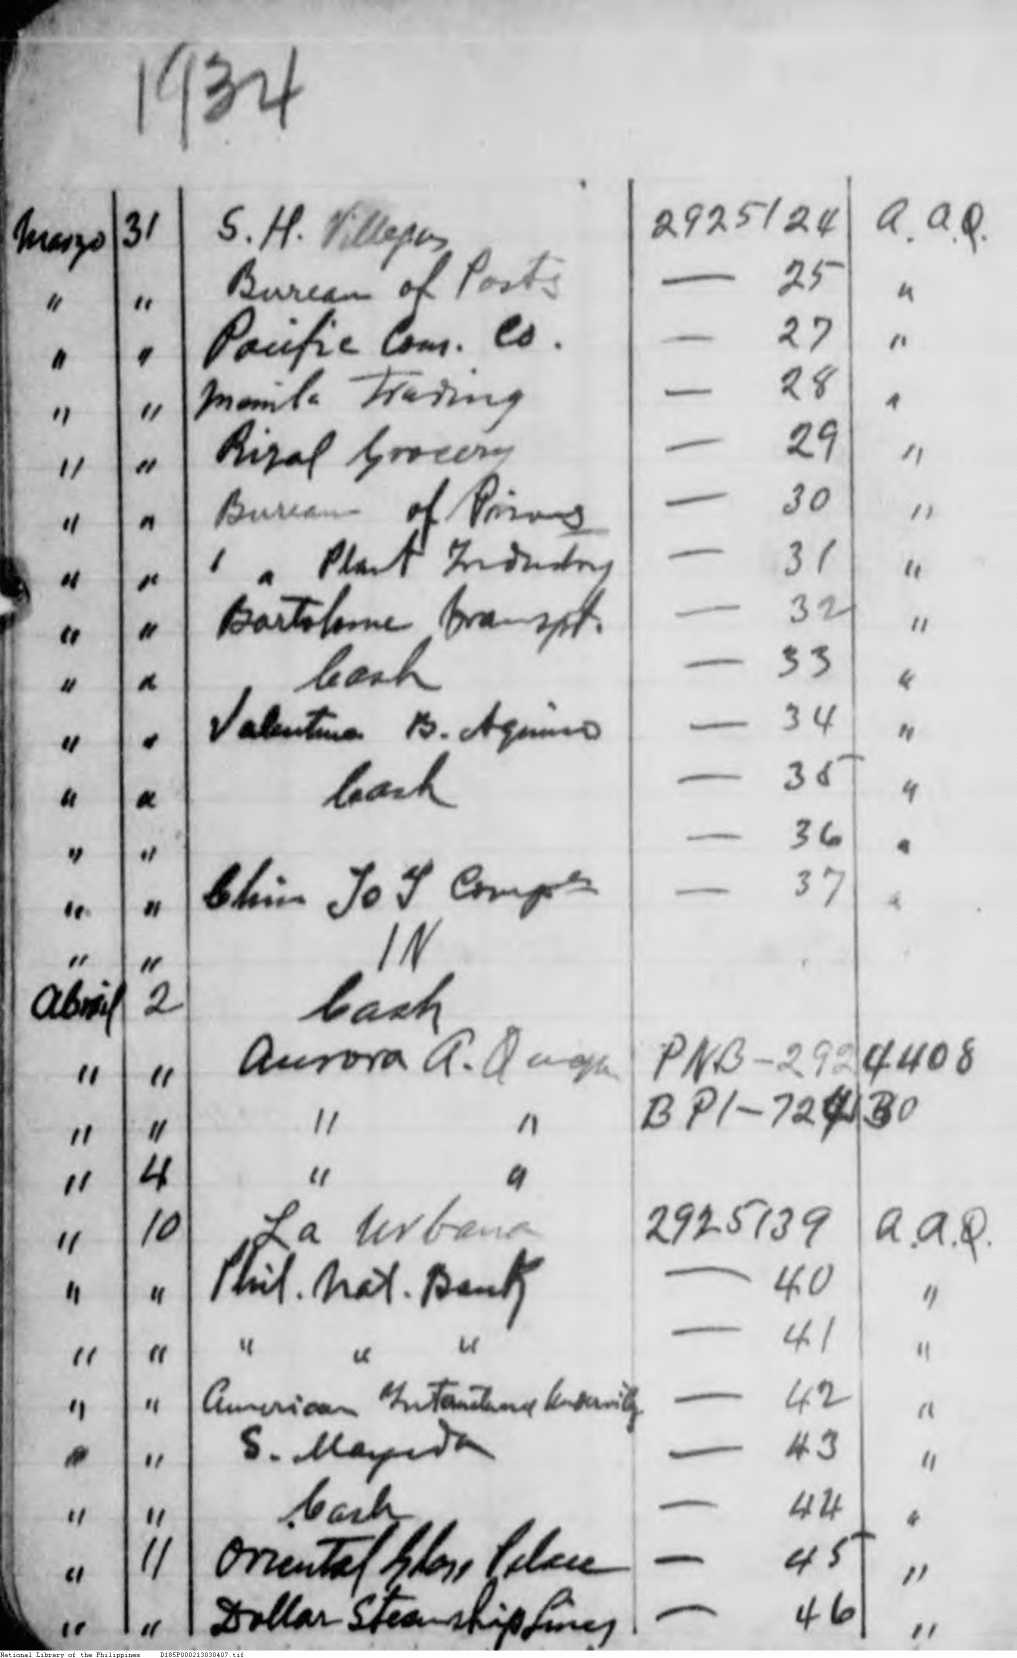 1934
Marzo 31 S. H. Villegas 2925124 A. A. Q.
" " Bureau of Posts — 25 "
" " Pacific Com. Co. — 27 "
" " Manila Trading — 28 "
" " Rizal Grocery — 29 "
" " Bureau of Prisons — 30 "
" " " " Plant Industry — 31 "
" " Bartolome Transpt. — 32 "
" " Cash — 33 "
" " Valentina B. Aquino — 34 "
" " Cash — 35 "
" " — 36 "
" " Chin To Y — 37 "
" " IN
Abril 2 Cash
" " Aurora A. PNB-2924408
" " " " BPI-
" 4 " "
" 10 La Urbana 2925139 A. A. Q.
" " Phil. Nat. Bank — 40 "
" " " " " — 41 "
" " American — 42 "
" " S. — 43 "
" " Cash — 44 "
" 11 Oriental Glass Palace — 45 "
" " Dollar Steamship Lines — 46 "
National Library of the Philippines D185P000213030407.tif